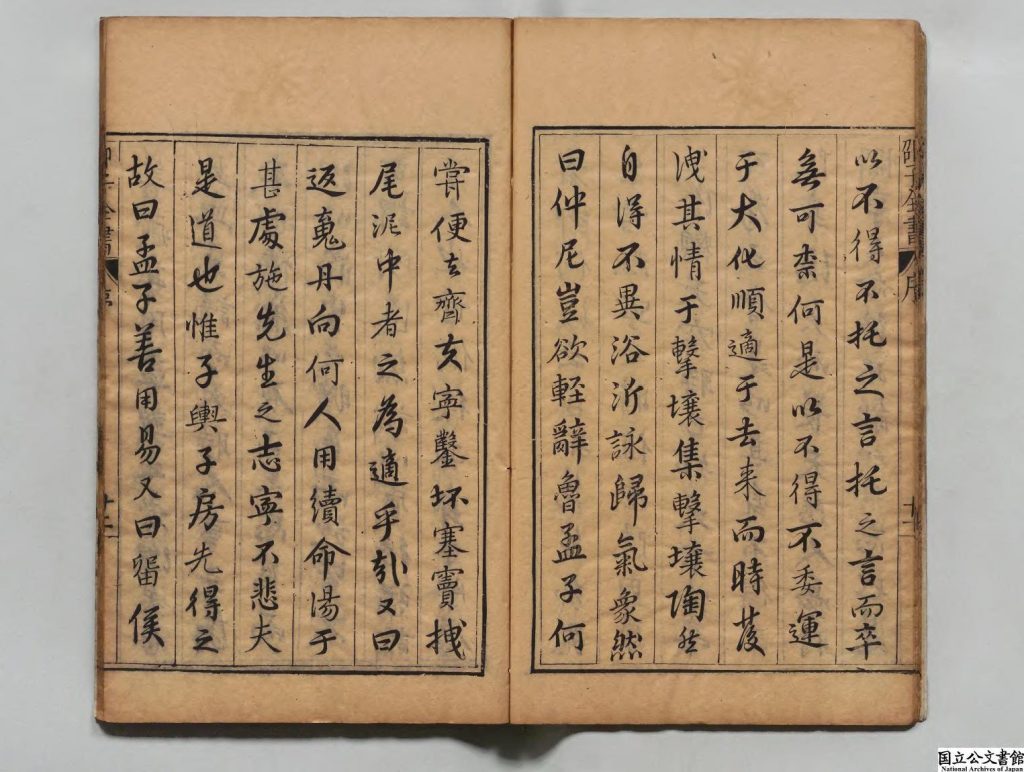 邵子全書 序
以不得不托之言托之言而卒
無可柰何是以不得不委運
于大化順適于去来而時發
洩其情于擊壤集擊壤陶然
自得不異浴沂詠歸氣象然
曰仲尼豈欲軽辭魯孟子何
甞便去齊夫寧鑿坏塞竇拽
尾泥中者之為適乎又曰
返䰟丹向何人用續命湯于
甚處施先生之志寧不悲夫
是道也惟子輿子房先得之
故曰孟子善用易又曰留侯
国立公文書館
National Archives of Japan